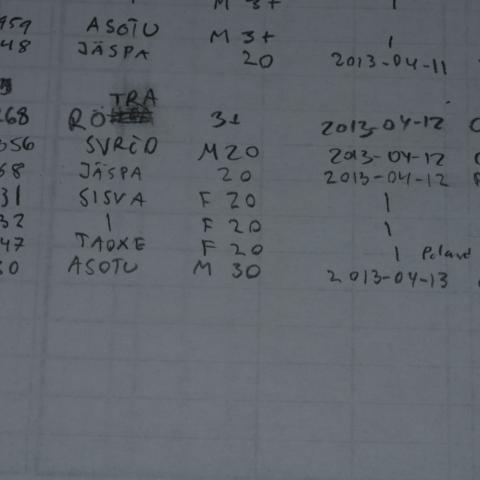 M 3+ |
959 ASOTU M 3+ |
48 JÄSPA 20 2013-04-11
TRA
268 RÖ 3+ 2013-04-12
056 SVRÖD M 20 2013-04-12
68 JÄSPA 20 2013-04-12
31 SISVA F 20 |
32 | F 20 |
47 TAOXE F 20 | Poland
30 ASOTU M 30 2013-04-13